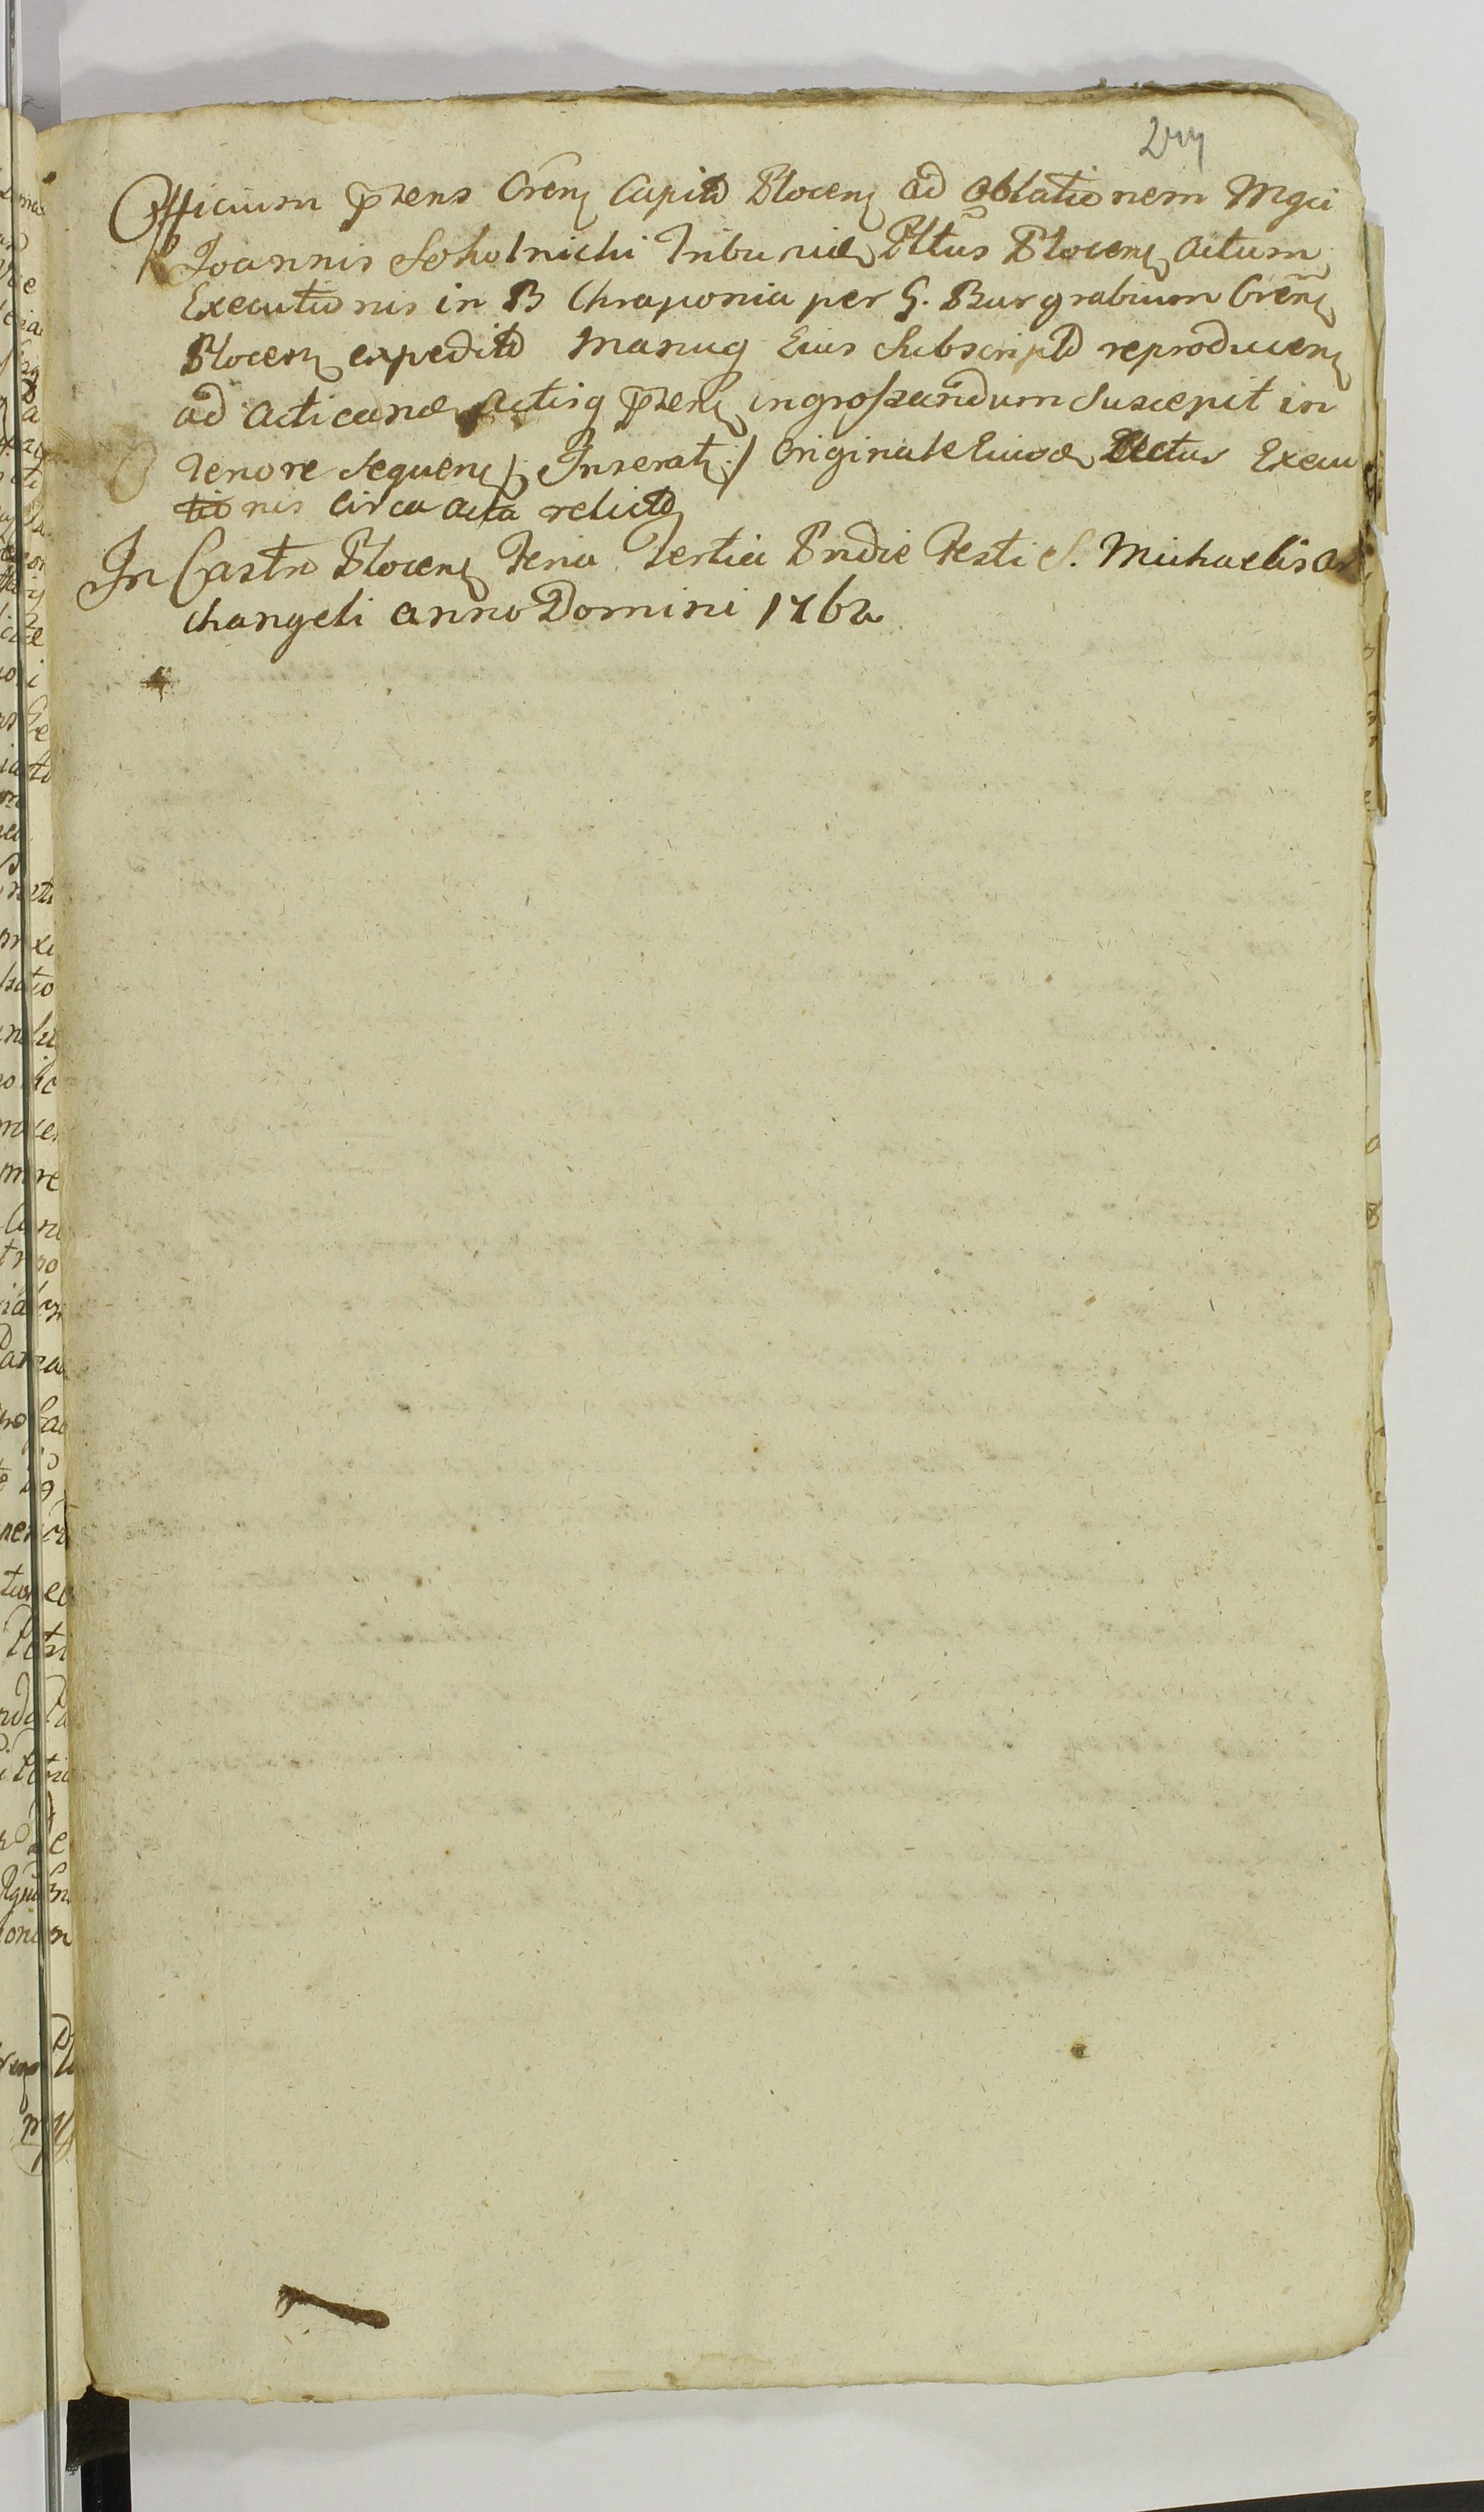 244
Officium pñens Crên Capitł Plocen ad Oblationem Mgci
Joannis Sokolnicki Tribunid Pltus Plocen Actum
Executionis in B Chraponia per G. Burgrabium Cren
Plocen expeditd Manuq Eius Subscriptd reproducen
ad acticand Actisq pñen ingrossandum suscepit in
Tenore Sequen /: Inserat :/ Originale Eiusd Actus Execu
tionis circa Acta relictd
In Castro Plocen Feria Tertia Pridie Festi S. Michaelis Ar
changeli Anno Domini 1762